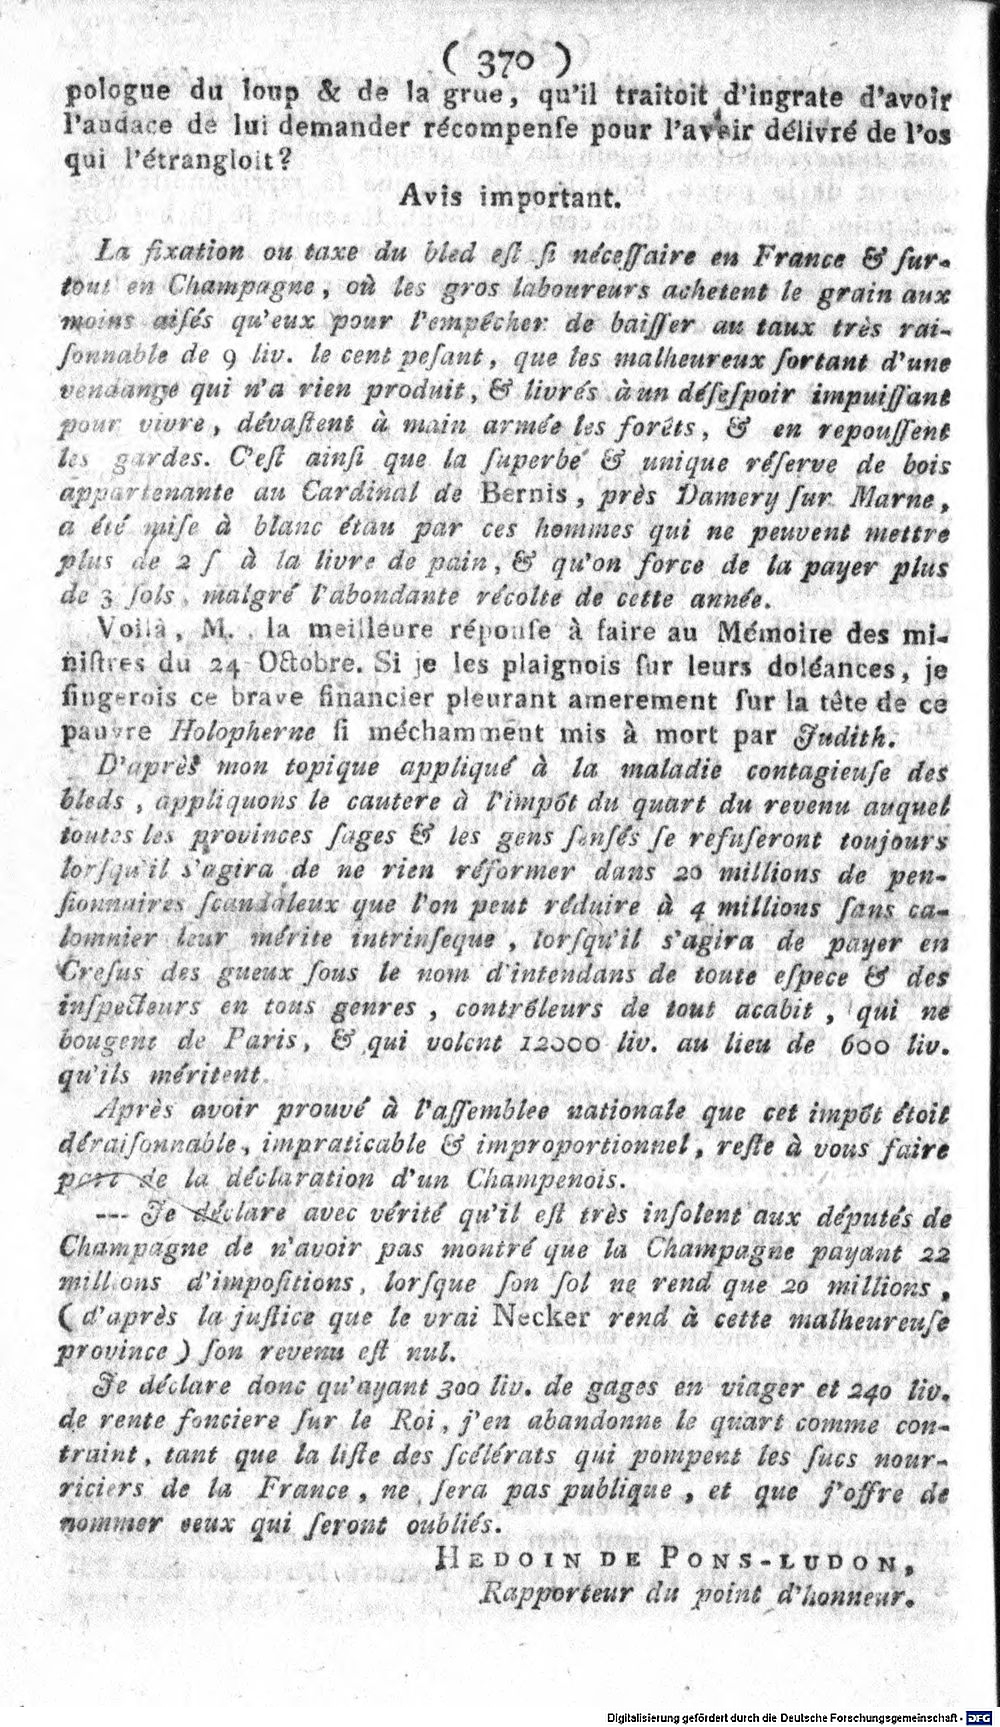 ( 370 )
pologue du loup & de la grue, qu'il traitoit d'ingrate d'avoir
l'audace de lui demander récompenſe pour l'avoir délivré de l'os
qui l'étrangloit?
Avis important.
La fixation ou taxe du bled eſt ſi néceſſaire en France & ſur-
tout en Champagne, où les gros laboureurs achetent le grain aux
moins aiſés qu'eux pour l'empêcher de baiſſer au taux très rai-
ſonnable de 9 liv. le cent peſant, que les malheureux ſortant d'une
vendange qui n'a rien produit, & livrés à un déſeſpoir impuiſſant
pour vivre, dévaſtent à main armée les forêts, & en repouſſent
les gardes. C'eſt ainſi que la ſuperbe & unique réſerve de bois
appartenante au Cardinal de Bernis, près Damery ſur Marne,
a été miſe à blanc étau par ces hommes qui ne peuvent mettre
plus de 2 ſ à la livre de pain, & qu'on force de la payer plus
de 3 ſols, malgré l'abondante récolte de cette année.
Voilà, M., la meilleure réponſe à faire au Mémoire des mi-
niſtres du 24 Octobre. Si je les plaignois ſur leurs doléances, je
ſingerois ce brave financier pleurant amerement ſur la tête de ce
pauvre Holopherne ſi méchamment mis à mort par Judith.
D'après mon topique appliqué à la maladie contagieuſe des
bleds, appliquons le cautere à l'impôt du quart du revenu auquel
toutes les provinces ſages & les gens ſenſés ſe refuſeront toujours
lorſqu'il s'agira de ne rien réformer dans 20 millions de pen-
ſionnaires ſcandaleux que l'on peut réduire à 4 millions ſans ca-
lomnier leur mérite intrinſeque, lorſqu'il s'agira de payer en
Creſus des gueux ſous le nom d'intendans de toute eſpece & des
inſpecteurs en tous genres, contrôleurs de tout acabit, qui ne
bougent de Paris, & qui volent 12000 liv. au lieu de 600 liv.
qu'ils méritent.
Après avoir prouvé à l'aſſemblee nationale que cet impôt étoit
déraiſonnable, impraticable & improportionnel, reſte à vous faire
part de la déclaration d'un Champenois.
--- Je déclare avec vérité qu'il eſt très inſolent aux députés de
Champagne de n'avoir pas montré que la Champagne payant 22
millions d'impoſitions, lorſque ſon ſol ne rend que 20 millions,
(d'après la juſtice que le vrai Necker rend à cette malheureuſe
province) ſon revenu eſt nul.
Je déclare donc qu'ayant 300 liv. de gages en viager et 240 liv.
de rente fonciere ſur le Roi, j'en abandonne le quart comme con-
traint, tant que la liſte des ſcélérats qui pompent les ſucs nour-
riciers de la France, ne ſera pas publique, et que j'offre de
nommer ceux qui ſeront oubliés.
HEDOIN DE PONS-LUDON,
Rapporteur du point d'honneur.
Digitalisierung gefördert durch die Deutsche Forschungsgemeinschaft - DFG